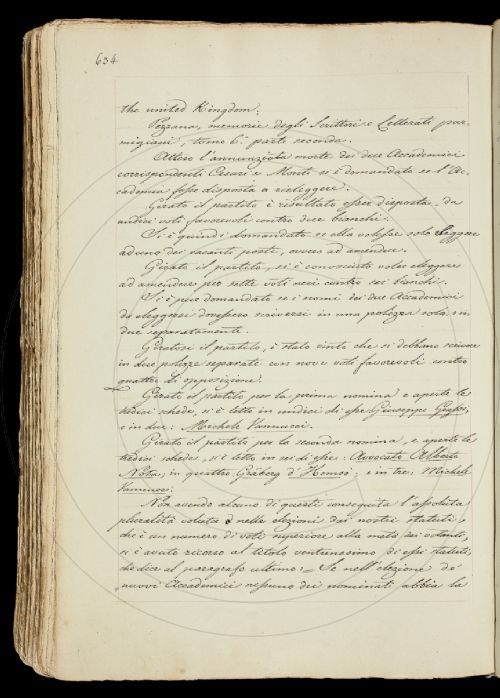 634
the united Kingdom.
Pezzana, memorie degli Scrittori e Letterati par-
migiani, tomo 6. parte seconda.
Atteso l'annunziata morte dei due Accademici
corrispondenti Cesari e Monti si è domandato se l'Ac-
cademia fosse disposta a rieleggere.
Girato il partito è risultato esser disposta, da
undici voti favorevoli contro due bianchi.
Si è quindi domandato se ella volesse solo eleggere
ad uno dei vacanti posti, ovvero ad amendue.
Girato il partito, si è conosciuto voler eleggere
ad amendue per sette voti neri contro sei bianchi.
Si è poi domandato se i nomi dei due Accademici
da eleggersi dovessero scriversi in una polizza sola, in
due separatamente.
Giratosi il partito, è stato vinto che si debbano scrivere
in due polizze separate con nove voti favorevoli contro
quattro di opposizione.
Girato il partito per la prima nomina e aperte le
tredici schede, si è letto in undici di esse Giuseppe Grassi,
e in due: Michele Vannucci.
Girato il partito per la seconda nomina, e aperte le
tredici schede, si è letto in sei di esse: Avvocato Alberto
Nota, in quattro, Gråberg d'Hemsö; e in tre: Michele
Vannucci.
Non avendo alcuno di questi conseguita l'assoluta
pluralità voluta nelle elezioni dai nostri statuti,
che è un numero di voti superiore alla metà dei votanti,
si è avuto ricorso al titolo ventunesimo di essi statuti
che dice al paragrafo ultimo: = Se nell'elezione de'
nuovi Accademici nessuno dei nominati abbia la